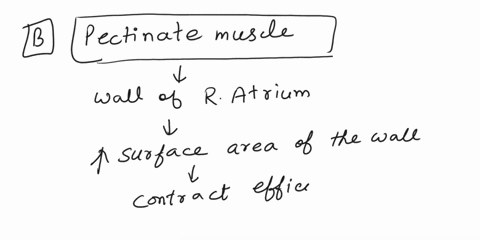 B Pectinate muscle
↓
wall of R. Atrium
↓
↑ surface area of the wall
↓
contract effic